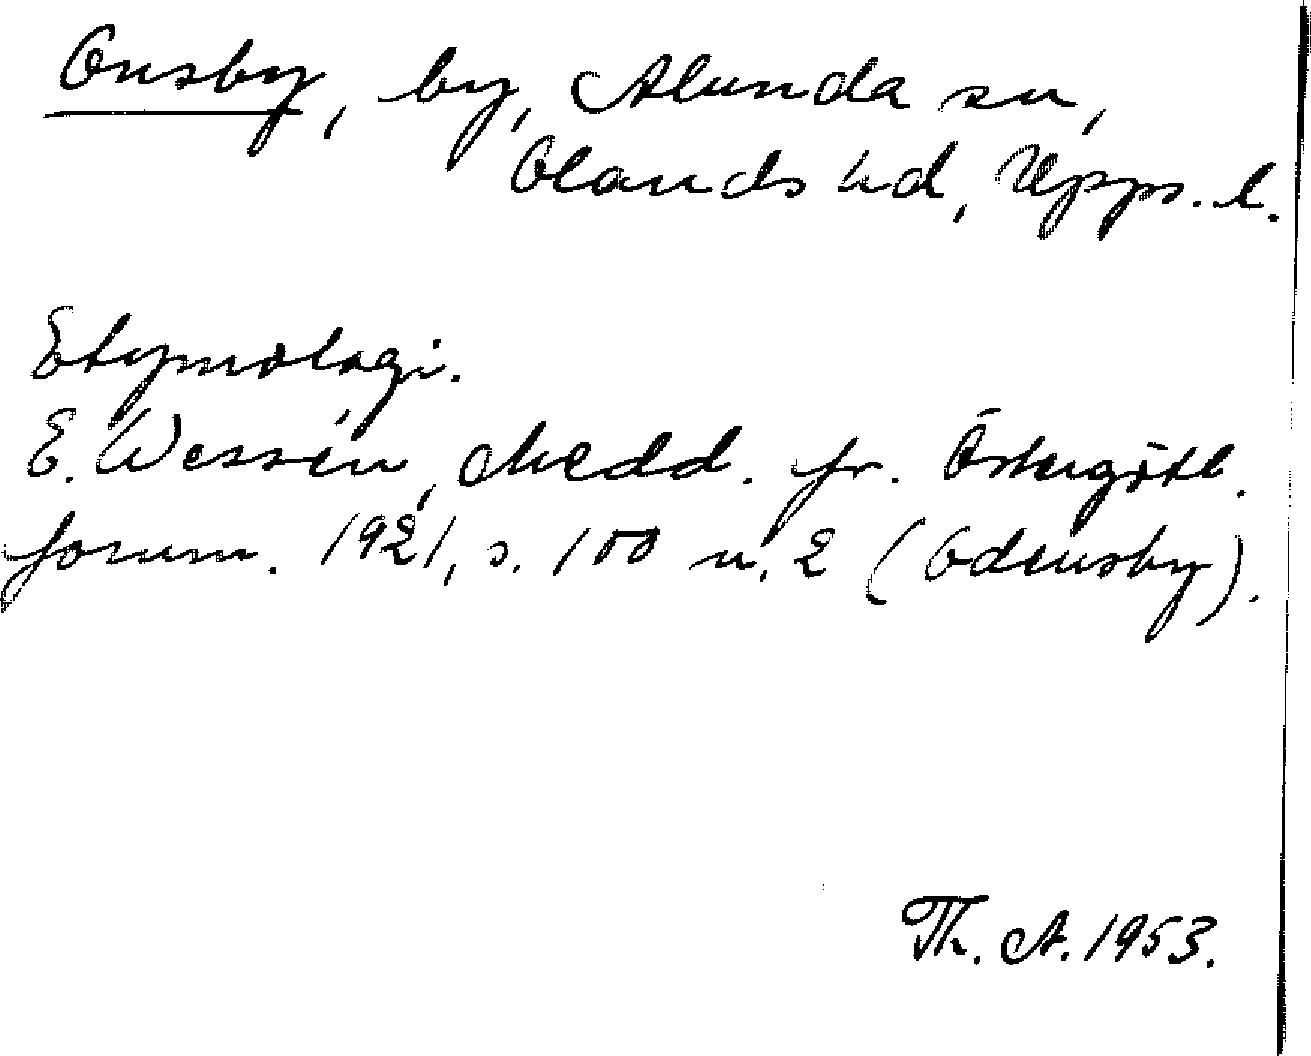 Onsby, by, Alunda sn,
Olands hd, Upps. l.
Etymologi.
E. Wessén, Medd. fr. Östergötl.
fornm. 1921, s. 100 n. 2 (Odensby).
Th. A. 1953.